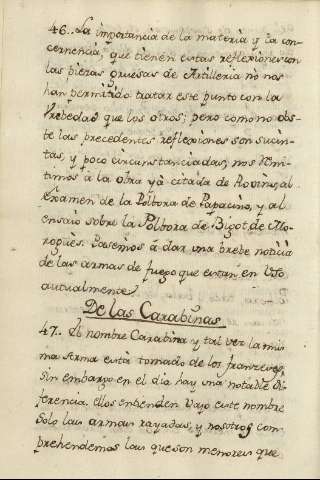 46.. La importancia de la materia y la con-
cernencia, que tienen estas reflexiones con
las piezas gruesas de Artilleria no nos
han permitido tratar este punto con la
brebedad que los otros; pero como no obs-
te las precedentes reflexiones son sucin-
tas, y poco circunstanciadas, nos remi-
timos á la obra yá citada de Rovins, al
exâmen de la Pólbora de Papacino, y al
ensaio sobre la Pólbora de Bigot de Mo-
rogues. Pasemos á dar una brebe noticia
de las armas de fuego que estan en uso
autualmente
De las Carabinas
47.. El nombre Carabina y tal vez la mis-
ma Arma está tomado de los franzeses,
sin embargo en el dia hay una notable di-
ferencia, ellos entienden vajo este nombre
solo las armas rayadas, y nosotros com-
prehendemos las que son menores que